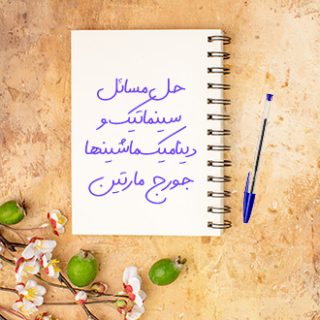 حل مسائل
سینماتیک و
دینامیک ماشینها
جورج مارتین